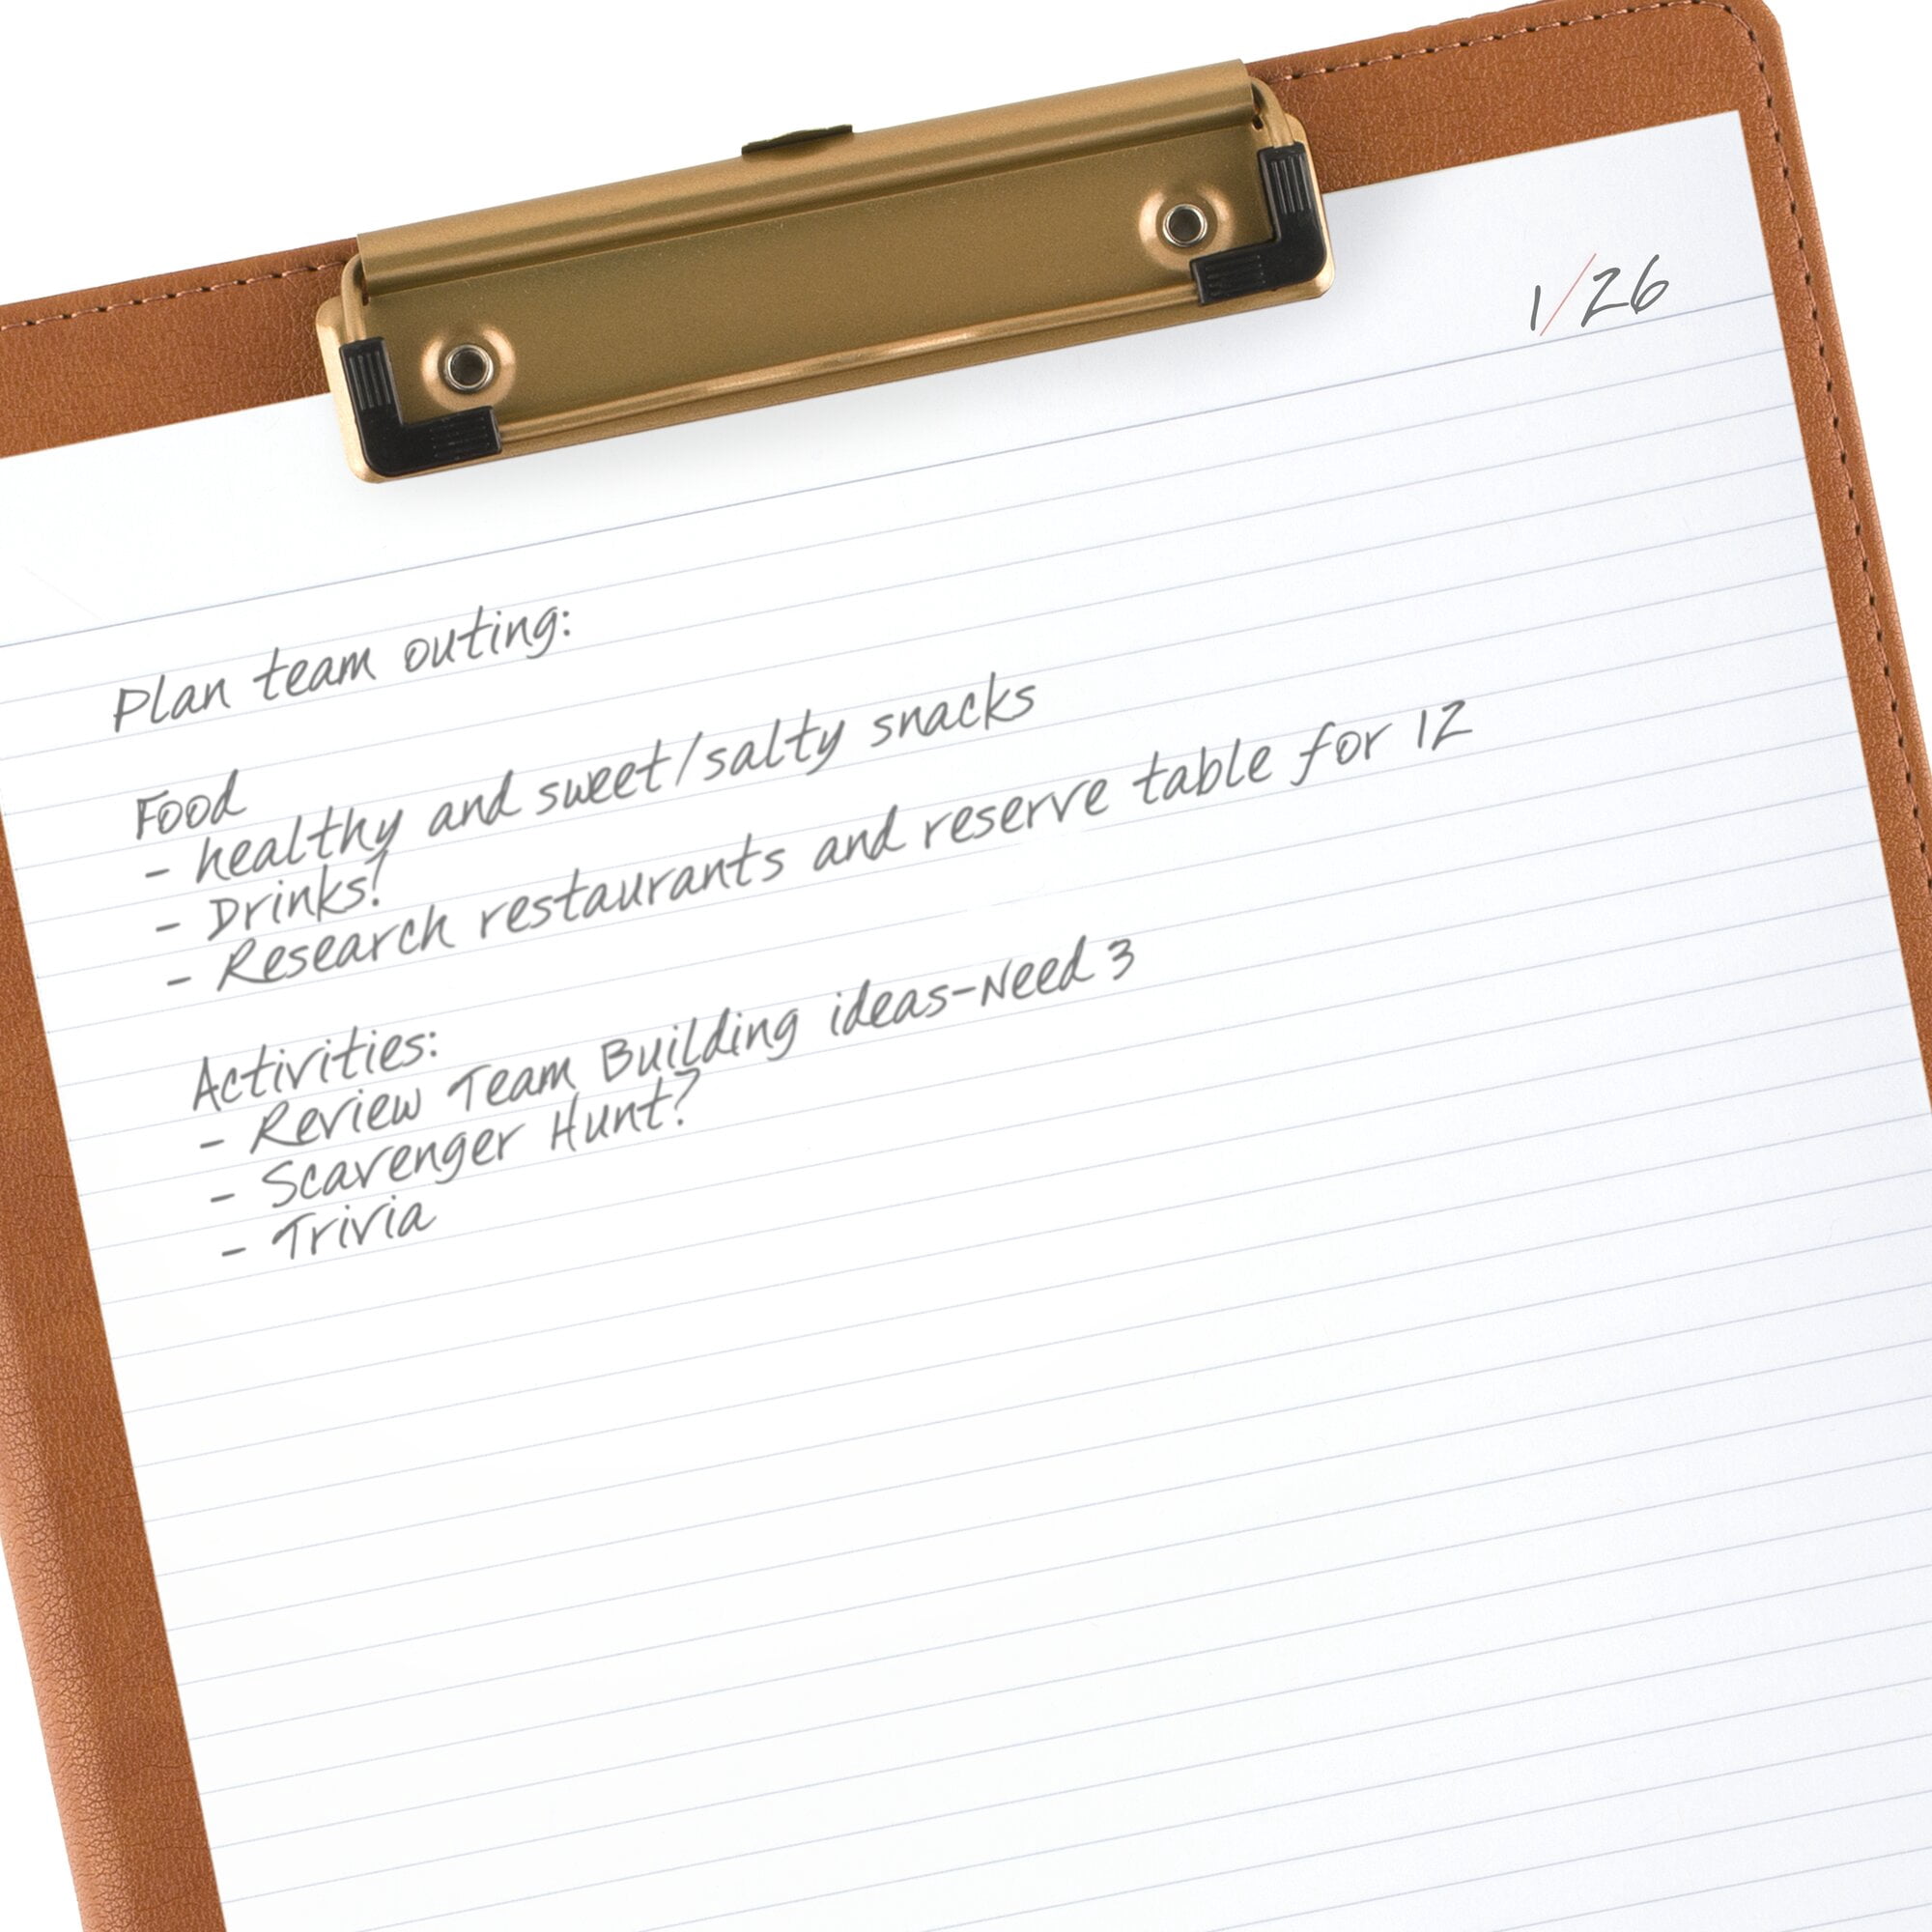 1/26
Plan team outing:
Food
- healthy and sweet/salty snacks
- Drinks!
- Research restaurants and reserve table for 12
Activities:
- Review Team Building ideas-Need 3
- Scavenger Hunt?
- Trivia